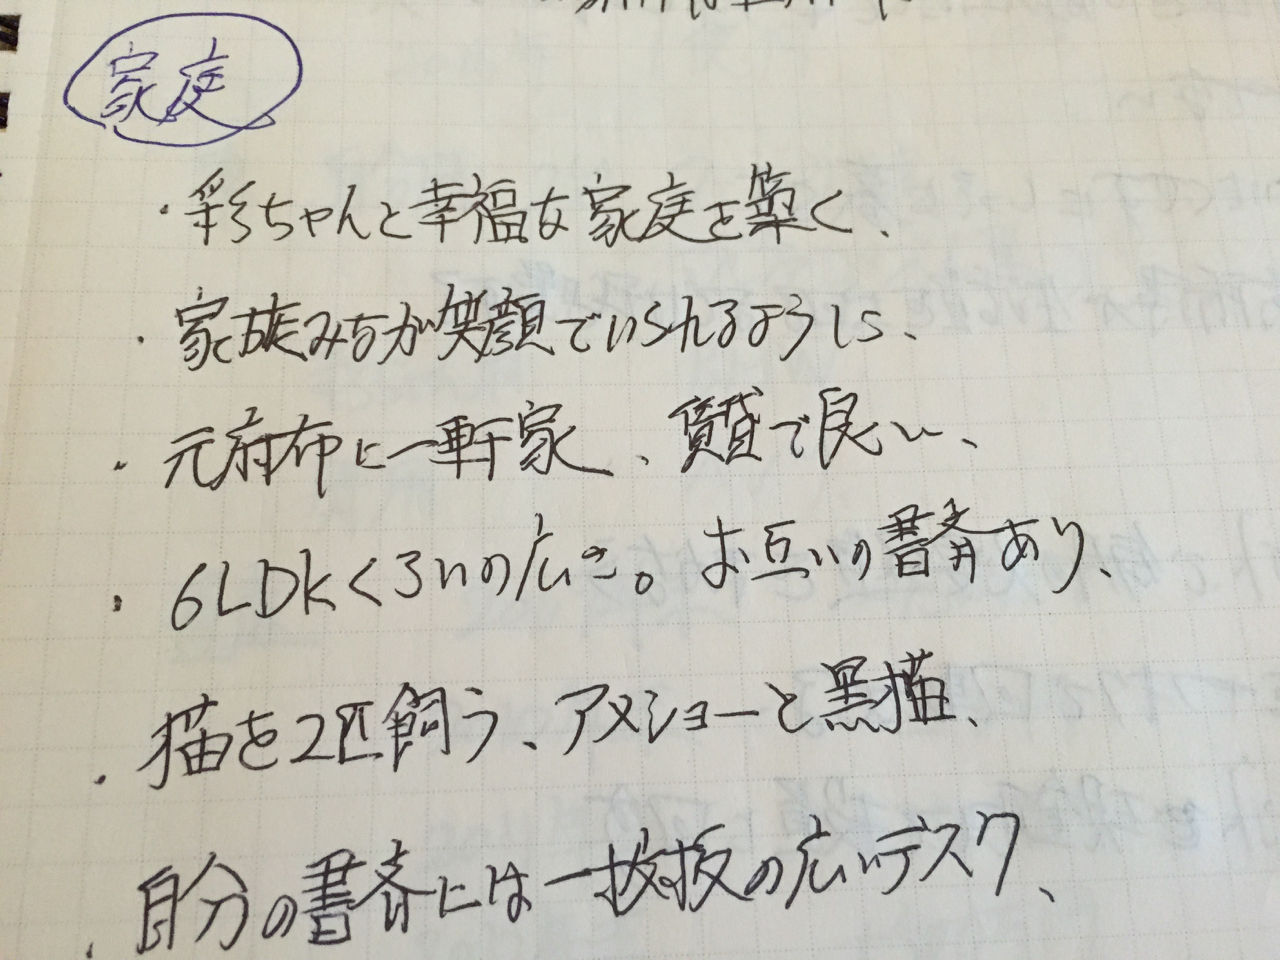 家庭
・彩ちゃんと幸福な家庭を築く、
・家族みなが笑顔でいられるように、
・元麻布に一軒家、賃貸で良い、
・6LDKくらいの広さ。お互いの書斎あり、
・猫を2匹飼う、アメショーと黒猫、
・自分の書斎には一枚板の広いデスク、